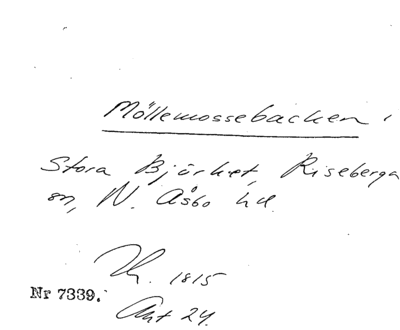 Möllemossebacken,
Stora Björket, Riseberga
sn, N. Åsbo hd.
Th. 1815
Nr 7339.
Akt 24.